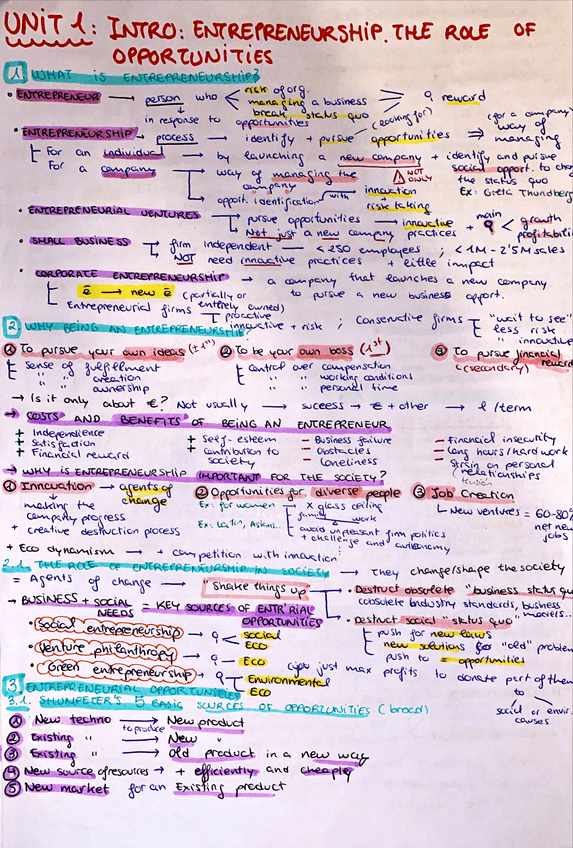 UNIT 1: INTRO: ENTREPRENEURSHIP. THE ROLE OF
OPPORTUNITIES
1 WHAT IS ENTREPRENEURSHIP?
• ENTREPRENEUR → person who < risk of org. managing a business break status quo > reward
in response to opportunities
• ENTREPRENEURSHIP → process → identify + pursue opportunities (looking for) ⇒ way of managing (for a company)
For an individual → by launching a new company + identify and pursue
social opport. to cha
the status quo
For a company → way of managing the company NOT ONLY
Ex: Greta Thunberg
opport. identification with → innovation + risk taking
• ENTREPRENEURIAL VENTURES → pursue opportunities → innovative practices + main < growth profitabili
Not just a new company
• SMALL BUSINESS → firm independent → < 250 employees ; < 1M - 2'5M sales
NOT need innovative practices + little impact
• CORPORATE ENTREPRENEURSHIP → a company that launches a new company
ē → new ē (partially or entirely owned) to pursue a new business opport.
Entrepreneurial firms → proactive innovative + risk ; Conservative firms → "wait to see"
less risk
" innovative
2. WHY BEING AN ENTREPRENEURSHIP
① To pursue your own ideas (±1st) ② To be your own boss (1st) ③ To pursue financial reward
(secondary)
Sense of fulfillment
" " creation
" " ownership
Control over compensation
" " working conditions
" " personal time
→ Is it only about €? Not usually → success → € + other → l/term
→ COSTS AND BENEFITS OF BEING AN ENTREPRENEUR
+ Independence
+ Satisfaction
+ Financial reward
+ Self-esteem
+ Contribution to society
- Business failure
- Obstacles
- Loneliness
- Financial insecurity
- Long hours/hard work
- Strain on personal relationships
tension
→ WHY IS ENTREPRENEURSHIP IMPORTANT FOR THE SOCIETY?
① Innovation → agents of change
making the company progress
+ creative destruction process
② Opportunities for diverse people
Ex: for women → x glass ceiling
family work
Ex: Latin, Asian...
avoid unpleasant firm politics
+ challenge and autonomy
③ Job Creation
New ventures = 60-80%
net new
jobs
+ Eco dynamism → + competition with innovation
2.1. THE ROLE OF ENTREPRENEURSHIP IN SOCIETY → They change/shape the society
= Agents of change → "Shake things up"
• Destruct obsolete "business status qu
(obsolete industry standards, business models...
→ BUSINESS + SOCIAL NEEDS = KEY SOURCES OF ENTR'RIAL OPPORTUNITIES
• Destruct social "status quo"
push for new laws
new solutions for "old" problem
push to = opportunities
• Social entrepreneurship → < social ECO
• Venture philanthropy → ECO
just max profits to donate part of them
to
social or envir.
causes
• Green entrepreneurship → Environmental ECO
3 ENTREPRENEURIAL OPPORTUNITIES
3.1. SHUMPETER'S 5 BASIC SOURCES OF OPPORTUNITIES (broad)
① New techno → to produce New product
② Existing " → New "
③ Existing " → Old product in a new way
④ New source of resources → + efficiently and cheaply
⑤ New market for an Existing product